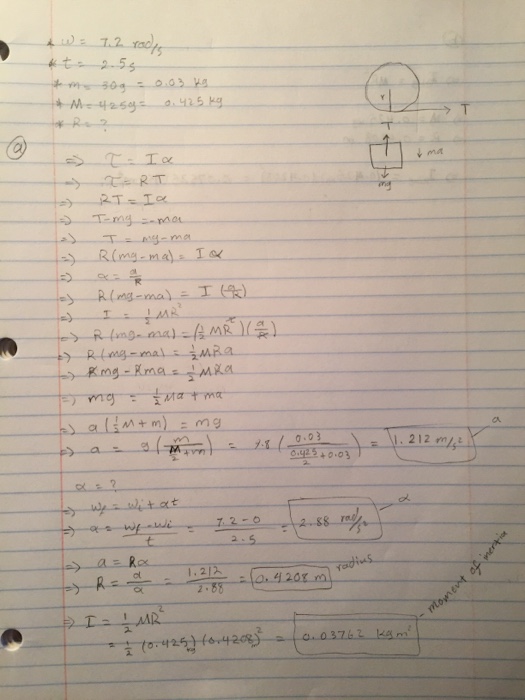 * ω = 7.2 rad/s
* t = 2.5 s
* m = 30g = 0.03 kg
* M = 425g = 0.425 kg
* R = ?
r
T
T
ma
mg
ⓐ
=> τ = Iα
=> τ = RT
=> RT = Iα
=> T-mg = -ma
=> T = mg-ma
=> R(mg-ma) = Iα
=> α = a/R
=> R(mg-ma) = I (a/R)
=> I = 1/2 MR²
=> R(mg-ma) = (1/2 MR²)(a/R)
=> R(mg-ma) = 1/2 MRa
=> Rmg - Rma = 1/2 MRa
=> mg = 1/2 Ma + ma
=> a(1/2 M + m) = mg
=> a = g(m/(M/2 + m)) = 9.8 (0.03/(0.425/2 + 0.03)) = 1.212 m/s² a
α = ?
=> ωf = ωi + αt
=> α = (ωf - ωi)/t = (7.2 - 0)/2.5 = 2.88 rad/s² α
=> a = Rα
=> R = a/α = 1.212/2.88 = 0.4208 m radius
=> I = 1/2 MR²
= 1/2 (0.425)kg (0.4208)² = 0.03762 kgm² - moment of inertia